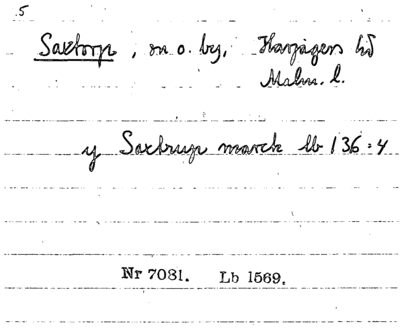 5
Saxtorp, sn o. by, Harjagers hd
Malm. l.
y Saxtrup marck lb 136:4
Nr 7081. Lb 1569.